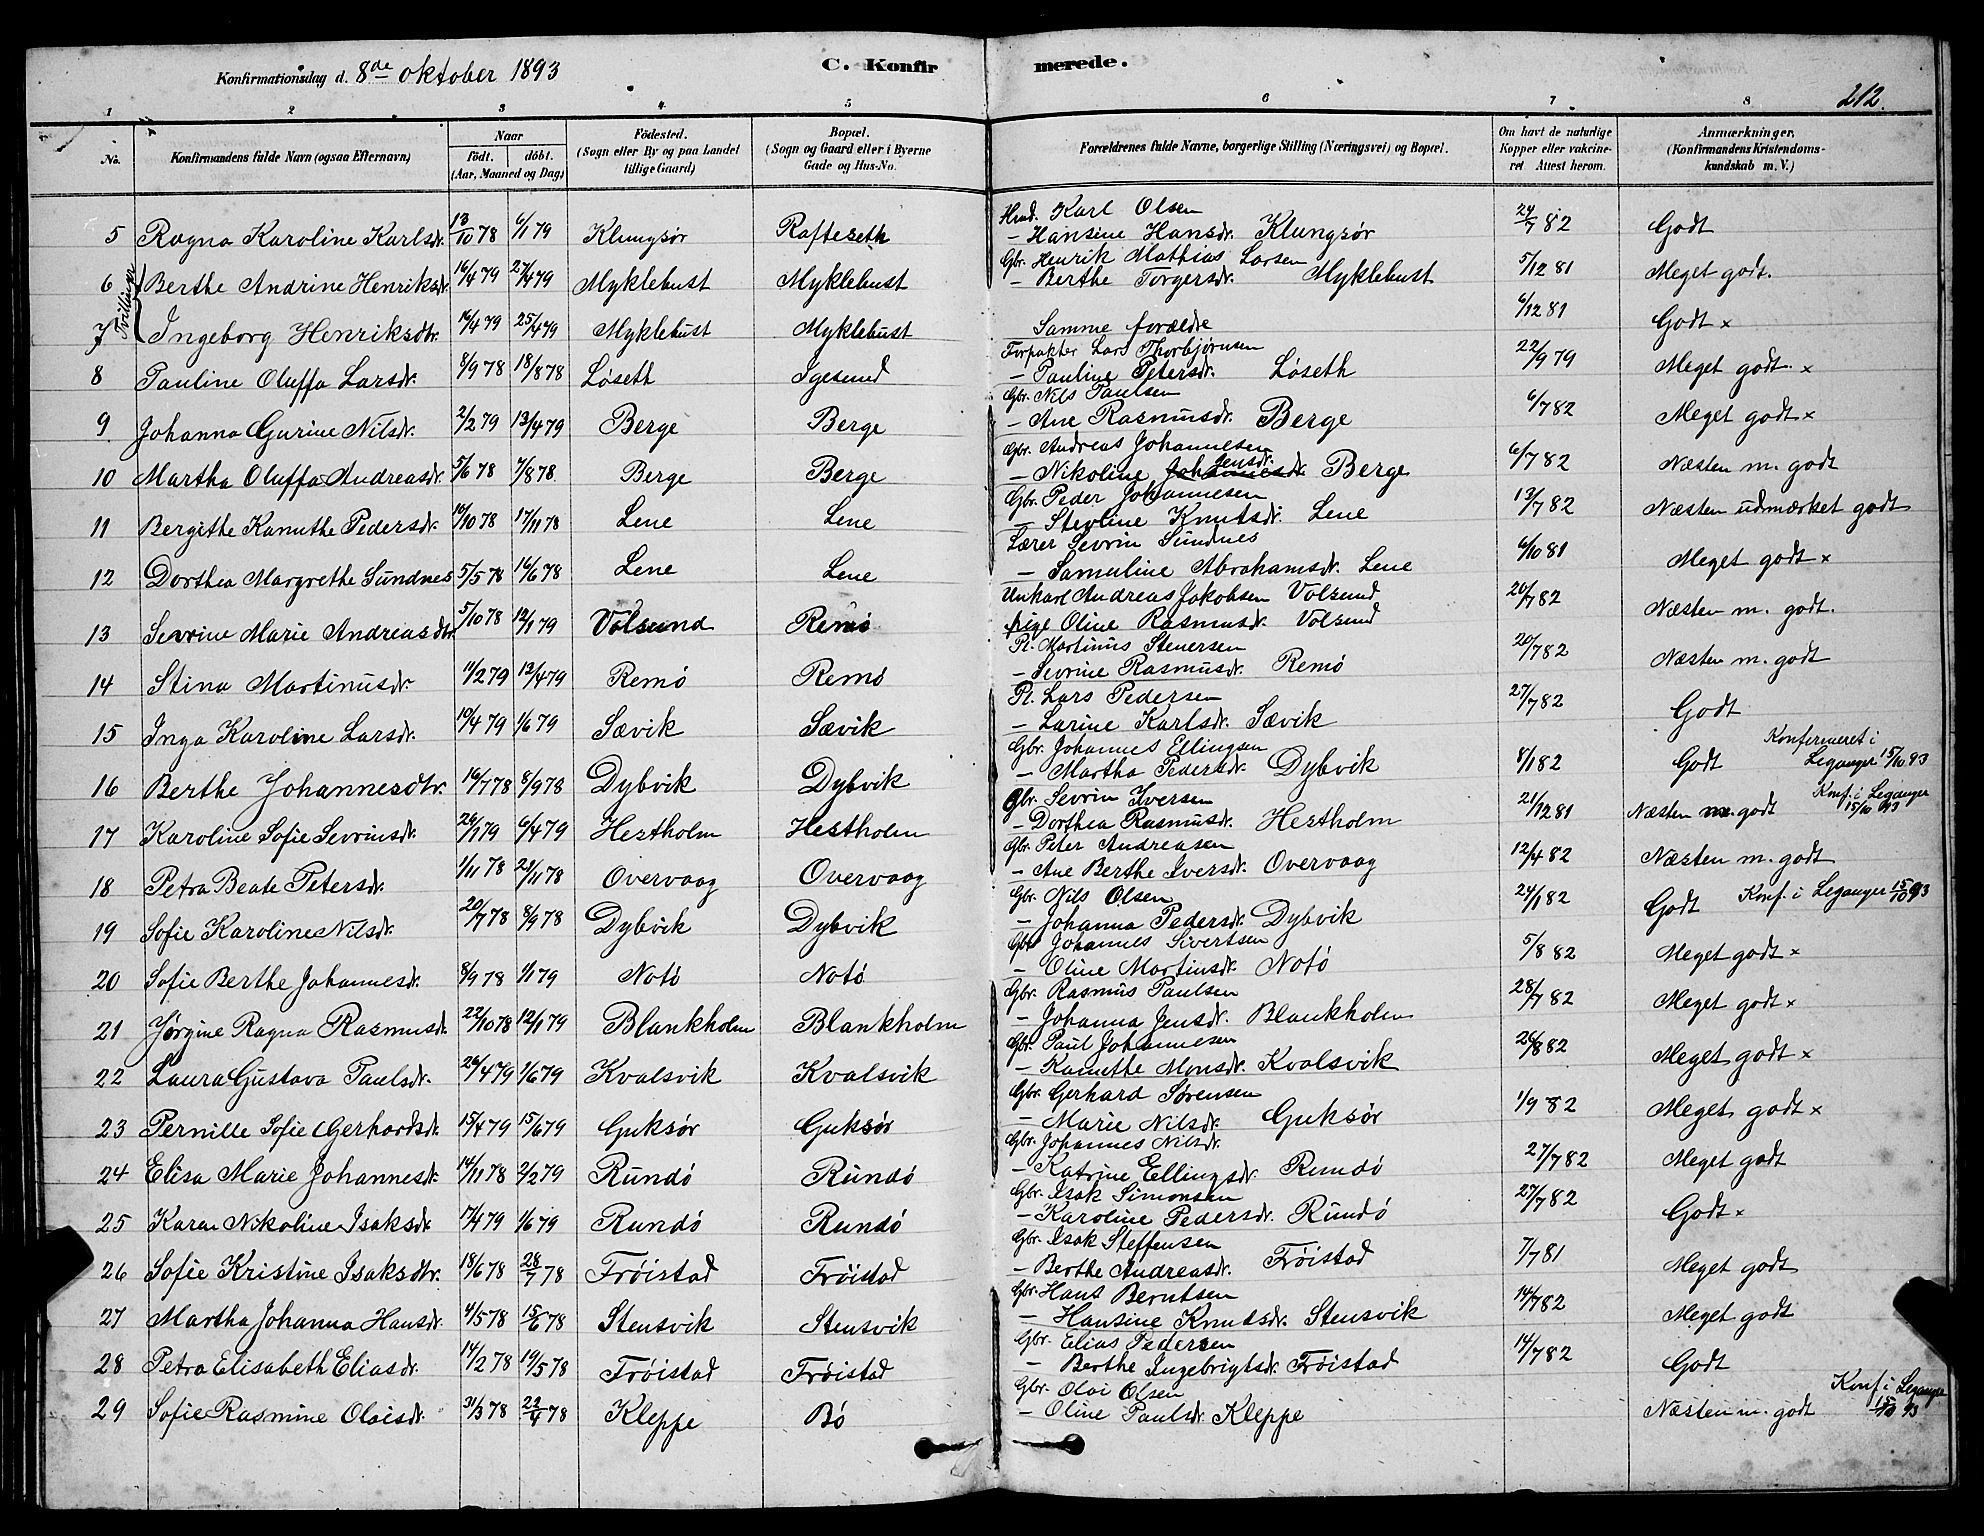 Konfirmationsdag d. 8de oktober 1893
C. Konfirmerede.
212.
1 2 3 4 5 6 7 8
No. Konfirmandens fulde Navn (ogsaa Efternavn) Naar født. døbt. (Aar, Maaned og Dag) Födested. (Sogn eller By og paa Landet tillige Gaard) Bopæl. (Sogn og Gaard eller i Byerne Gade og Hus-No. Forældrenes fulde Navne, borgerlige Stilling (Næringsvei) og Bopæl. Om havt de naturlige Kopper eller vakcineret Attest herom. Anmærkninger, (Konfirmandens Kristendomskundskab m. V.)
5 Ragna Karoline Karlsdr. 13/10 78 6/1 79 Klungsør Rafteseth Hmd. Karl Olsen
- Hansine Hansdr. Klungsør 24/7 82 Godt
Tvillinger
6 Berthe Andrine Henriksdr. 16/4 79 27/4 79 Myklebust Myklebust Gbr. Henrik Mathias Larsen
- Berthe Torgersdr. Myklebust 5/12 81 Meget godt.
7 Ingeborg Henriksdtr. 16/4 79 25/4 79 Myklebust Myklebust Samme forældre 6/12 81 Godt x
8 Pauline Oluffa Larsdr. 8/9 78 18/8 78 Løseth Igesund Forpakter Lars Thorbjørnsen
- Pauline Petersdr. Løseth 22/9 79 Meget godt. x
9 Johanna Gurine Nilsdr. 2/2 79 13/4 79 Berge Berge Gbr. Nils Paulsen
- Ane Rasmusdr. Berge 6/7 82 Meget godt x
10 Martha Oluffa Andreasdr. 5/6 78 7/8 78 Berge Berge Gbr. Andreas Johannesen
- Nikoline Johannesdr. Jensdr. Berge 6/7 82 Næsten m. godt
11 Bergithe Kanuthe Pedersdr. 10/10 78 17/11 78 Lene Lene Gbr. Peder Johannesen
- Stevline Knutsdr. Lene 13/7 82 Næsten udmærket godt
12 Dorthea Margrethe Sundnes 5/5 78 16/6 78 Lene Lene Lærer Sevrin Sundnes
- Samuline Abrahamsdr. Lene 6/10 81 Meget godt x
13 Sevrine Marie Andreasdtr. 5/10 78 12/1 79 Volsund Remö Unkarl Andreas Jakobsen Volsund
pige Oline Rasmusdr. Volsund 20/7 82 Næsten m. godt.
14 Stina Martinusdr. 11/2 79 13/4 79 Remö Remö Pl. Martinus Stenersen
- Sevrine Rasmusdr. Remö 20/7 82 Næsten m. godt
15 Inga Karoline Larsdr. 10/4 79 1/6 79 Sævik Sævik Pl. Lars Pedersen
- Larine Karlsdr. Sævik 27/7 82 Godt
16 Berthe Johannesdtr. 16/7 78 8/9 78 Dybvik Dybvik Gbr. Johannes Ellingsen
- Martha Pedersdr. Dybvik 4/1 82 Godt Konfirmeret i Leganger 15/10 93
17 Karoline Sofie Sevrinsdr. 26/1 79 6/4 79 Hestholm Hestholm Gbr. Sevrin Iversen
- Dorthea Rasmusdr. Hestholm 21/12 81 Næsten m. godt Konf. i Leganger 15/10 93
18 Petra Beate Petersdr. 1/11 78 21/11 78 Overvaag Overvaag Gbr. Peter Andreasen
- Ane Berthe Iversdr. Overvaag 12/4 82 Næsten m. godt
19 Sofie Karoline Nilsdr. 20/7 78 8/9 78 Dybvik Dybvik Gbr. Nils Olsen
- Johanna Pedersdr. Dybvik 24/1 82 Godt Konf. i Leganger 15/10 93
20 Sofie Berthe Johannesdr. 8/9 78 1/1 79 Notö Notö Gbr. Johannes Sivertsen
- Oline Martinsdr. Notö 5/8 82 Meget godt x
21 Jørgine Ragna Rasmusdr. 22/10 78 12/1 79 Blankholm Blankholm Gbr. Rasmus Paulsen
- Johanna Jensdr. Blankholm 28/7 82 Meget godt x
22 Laura Gustava Paulsdr. 26/4 79 1/6 79 Kvalsvik Kvalsvik Gbr. Paul Johannesen
- Kanuthe Monsdr. Kvalsvik 26/8 82 Meget godt x
23 Pernille Sofie Gerhardsdr. 15/4 79 15/6 79 Guksør Guksør Gbr. Gerhard Sørensen
- Marie Nilsdr. Guksør 1/9 82 Meget godt x
24 Elisa Marie Johannesdr. 14/11 78 2/2 79 Rundö Rundö Gbr. Johannes Nilsdr.
- Katrine Ellingsdr. Rundö 27/7 82 Meget godt
25 Karen Nikoline Isaksdr. 7/4 79 1/6 79 Rundö Rundö Gbr. Isak Simonsen
- Karoline Pedersdr. Rundö 27/7 82 Godt x
26 Sofie Kristine Isaksdtr. 18/6 78 28/7 78 Fröistad Fröistad Gbr. Isak Steffensen
- Berthe Andreasdr. Fröistad 7/7 81 Meget godt
27 Martha Johanna Hansdr. 4/5 78 15/6 78 Stensvik Stensvik Gbr. Hans Berntsen
- Hansine Knudsdr. Stensvik 14/7 82 Meget godt
28 Petra Elisabeth Eliasdr. 14/2 78 19/5 78 Fröistad Fröistad Gbr. Elias Pedersen
- Berthe Ingebrigtsdr. Fröistad 14/7 82 Godt
29 Sofie Rasmine Olaisdr. 31/3 78 22/4 78 Kleppe Bö Gbr. Olai Olsen
- Oline Paulsdr. Kleppe Næsten m. godt Konf. i Leganger 15/10 93